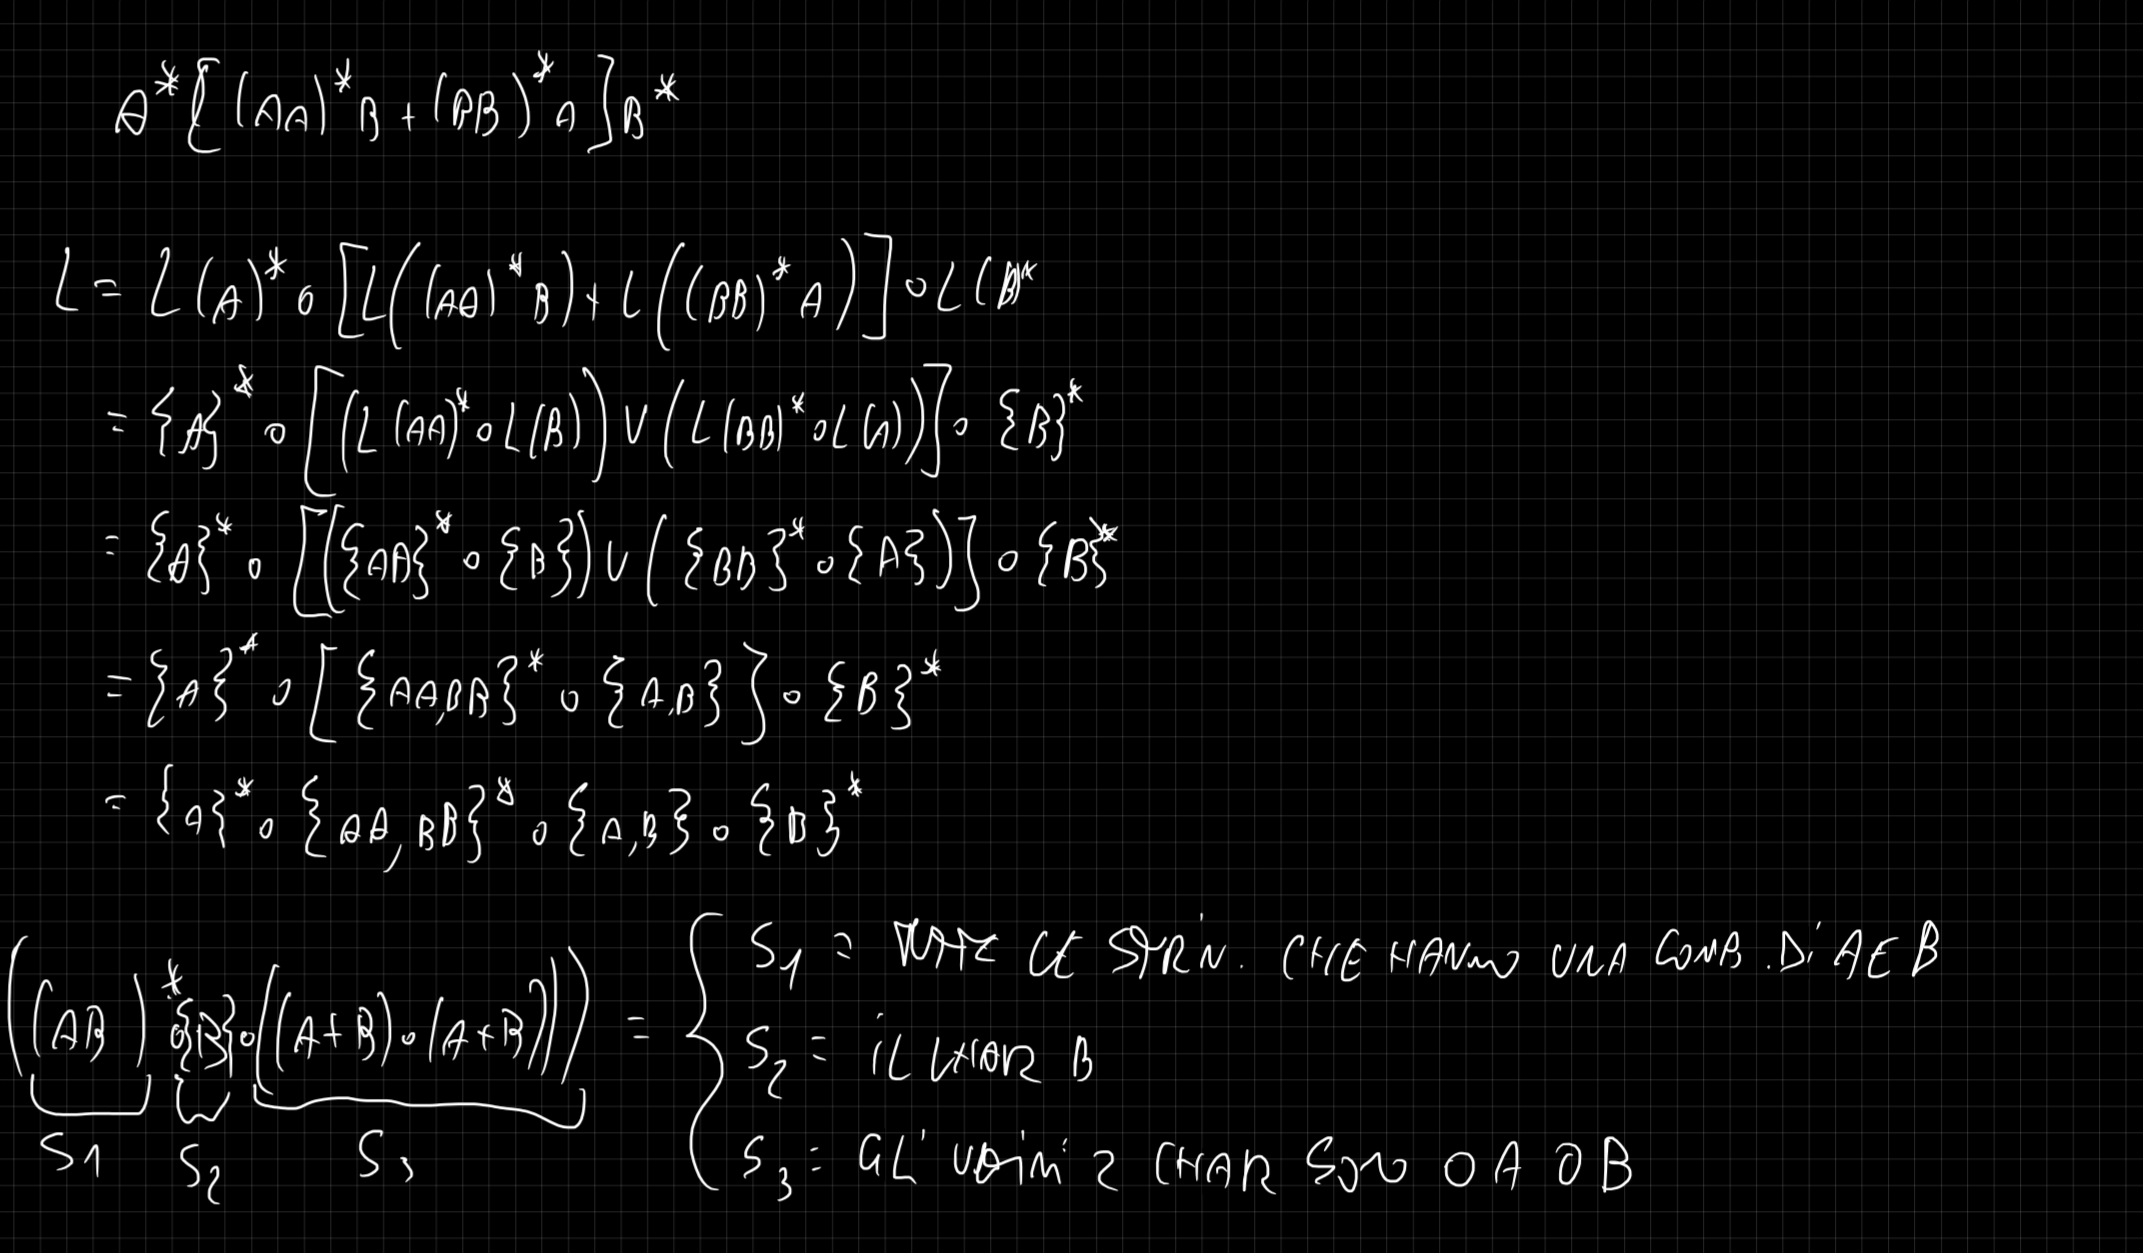 A*[(AA)*B+(BB)*A]B*
L = L(A)* o [L((AA)*B)+L((BB)*A)] o L(B)*
= {A}* o [(L(AA)* o L(B)) U (L(BB)* o L(A))] o {B}*
= {A}* o [({AA}* o {B}) U ({BB}* o {A})] o {B}*
= {A}* o [{AA,BB}* o {A,B}] o {B}*
= {A}* o {AA,BB}* o {A,B} o {B}*
((AB)* o {B} o ((A+B) o (A+B))) =
S1 S2 S3
S1 = TUTTE LE STRIN. CHE HANNO UNA COMB. DI A E B
S2 = IL CHAR B
S3 = GLI ULTIMI 2 CHAR SONO O A O B